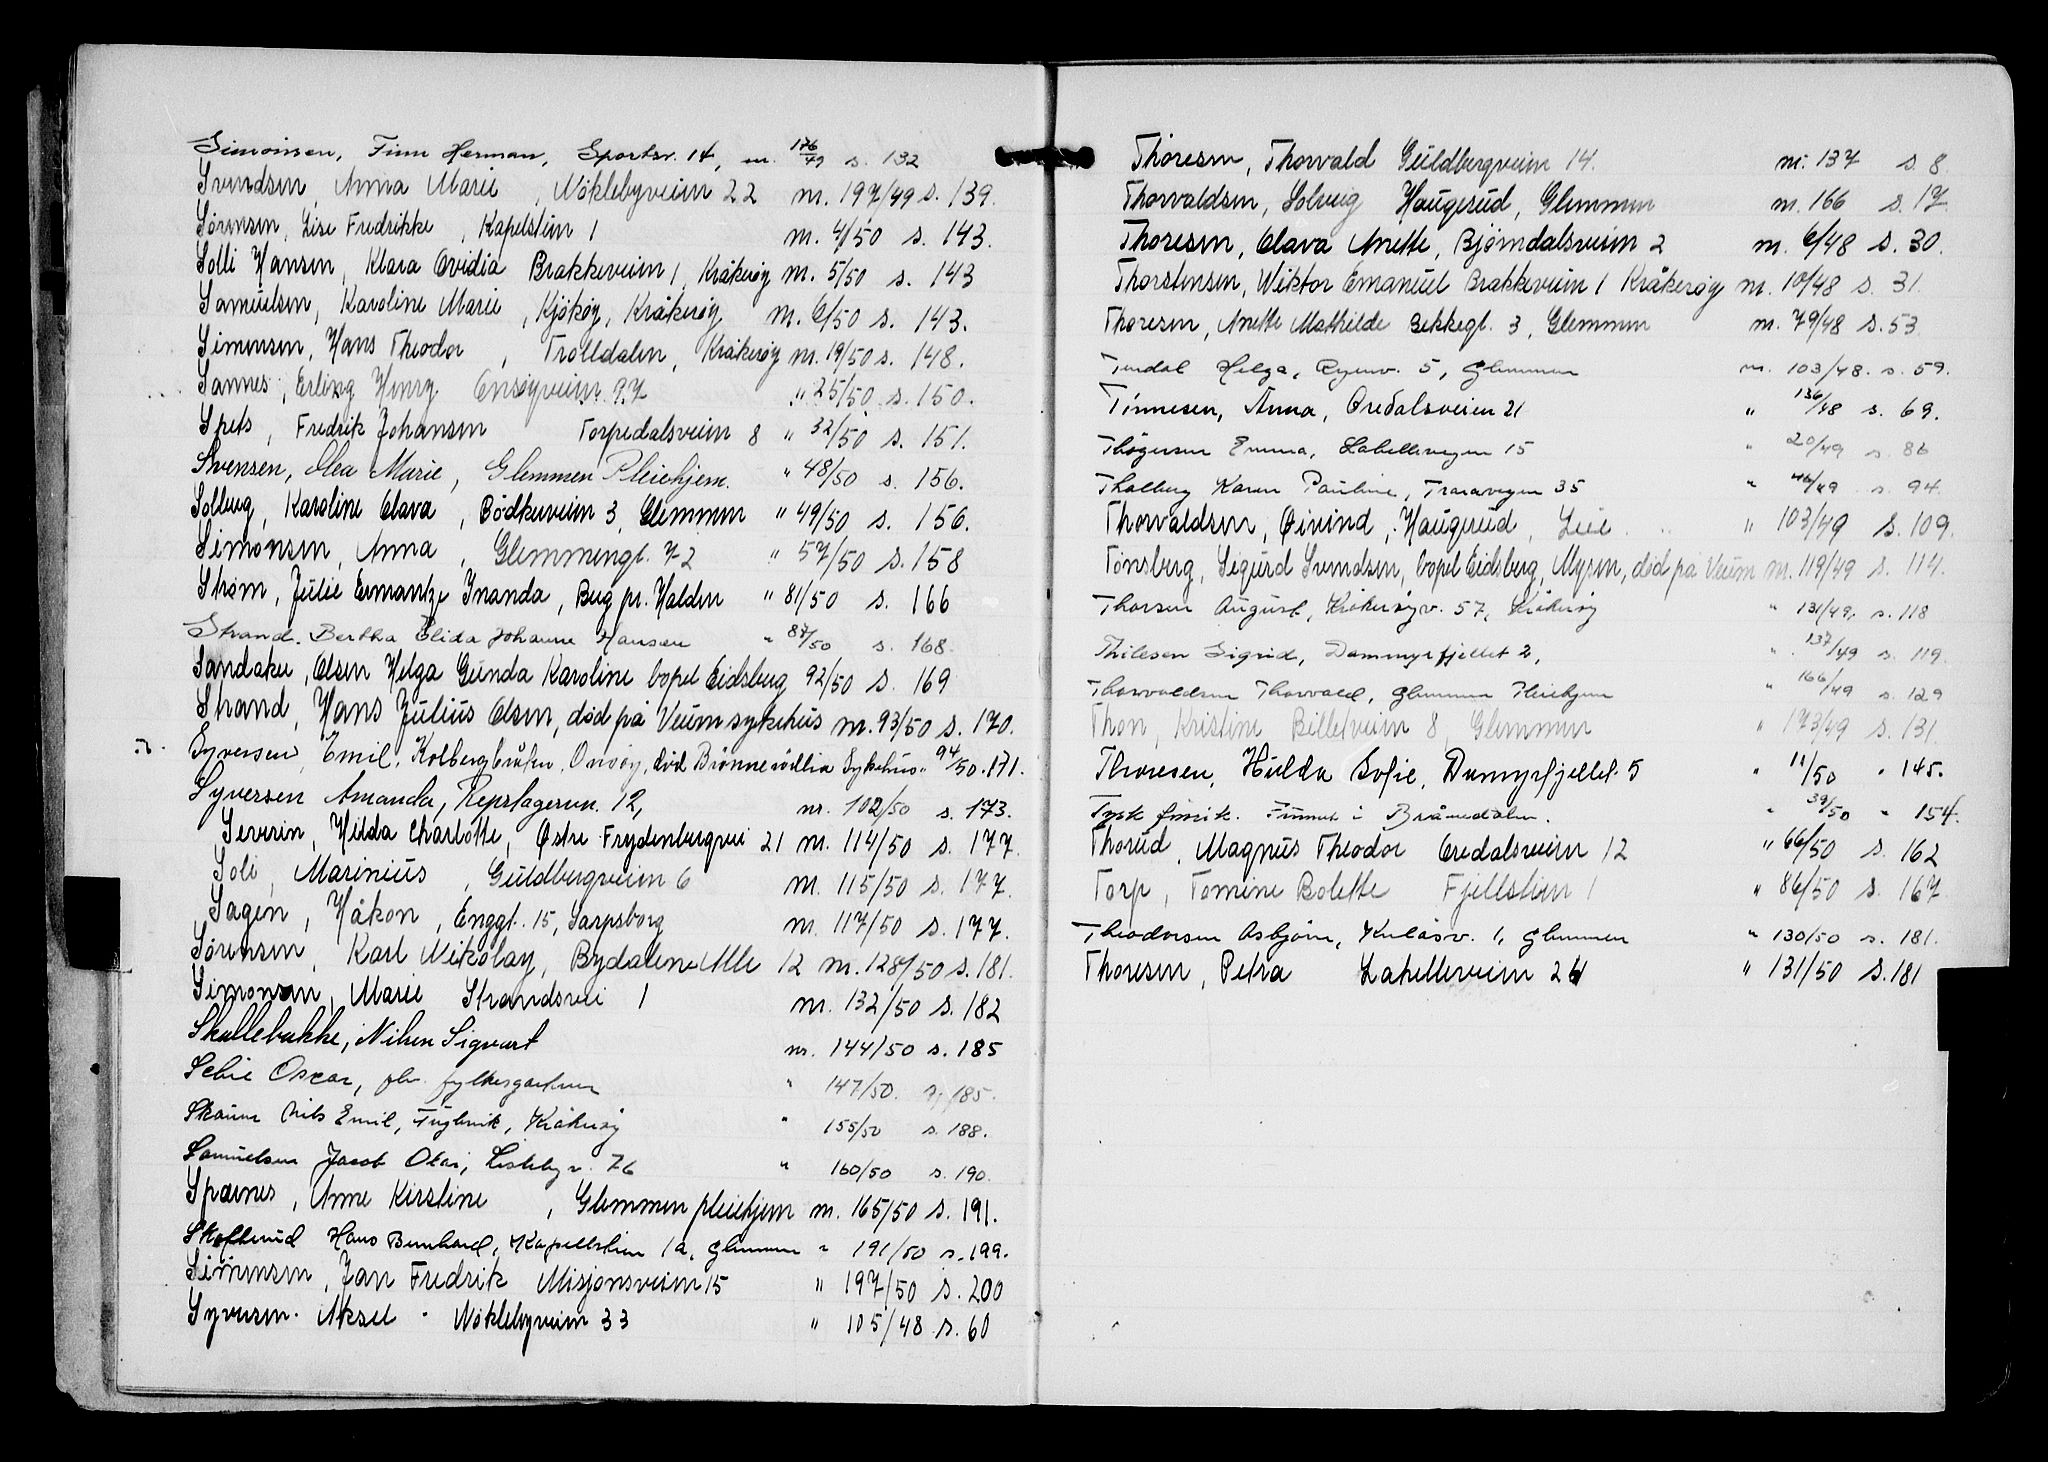 Simonsen, Finn Herman, Sportsv. 14, nr. 176/49 s. 132
Svendsen, Anna Marie, Nöklebyveien 22 nr. 197/49 s. 139.
Sørensen, Lise Fredrikke, Kapelstien 1 nr. 4/50 s. 143.
Solli Hansen, Klara Ovidia Brakkeveien 1, Kråkerøy nr. 5/50 s. 143
Samuelsen, Karoline Marie, Kjökøy, Kråkerøy nr. 6/50 s. 143.
Simensen, Hans Theodor, Trolldalen, Kråkerøy nr. 19/50 s. 148.
Sannes, Erling Henry Onsøyveien 97 " 25/50 s. 150.
Spets, Fredrik Johansen Torpedalsveien 8 " 32/50 s. 151.
Svensen, Olea Marie, Glemmen Pleiehjem. " 48/50 s. 156.
Solberg, Karoline Olava, Bödkerveien 3, Glemmen " 49/50 s. 156.
Simonsen, Anna, Glemmengt. 72 " 57/50 s. 158
Strøm, Julie Ermantze Inanda, Berg pr. Halden " 81/50 s. 166
Strand. Bertha Elida Johanne Hansen " 87/50 s. 168.
Sandaker, Olsen Helga Gunda Karoline bopel Eidsberg 92/50 s. 169
Strand, Hans Julius Olsen, død på Veum sykehus nr. 93/50 s. 170.
Syversen, Emil, Kolbergbråten, Onsøy, død Brönnerödlia Sykehus " 94/50 . 171.
Syversen Amanda, Repslagerven. 12, nr. 102/50 s. 173.
Severin, Hilda Charlotte, Østre Frydenbergvei 21 nr. 114/50 s. 177.
Soli, Marinius, Guldbergveien 6 nr. 115/50 s. 177.
Sagen, Håkon, Enggt. 15, Sarpsborg nr. 117/50 s. 177.
Sørensen, Karl Nikolay, Bydalens Alle 12 nr. 128/50 s. 181.
Simonsen, Marie Strandsvei 1 nr. 132/50 s. 182
Skallebakke, Nilsen Sigvart nr. 144/50 s. 185
Selie Oscar, fhv. fylkesgartner " 147/50. s. 185.
Skaune Nils Emil, Fuglevik, Kråkerøy " 155/50 s. 188.
Samuelsen Jacob Olai, Lislebyv. 76 " 160/50 s. 190.
Spærnes, Anne Kirstine, Glemmen pleiehjem nr. 165/50 s. 191.
Skofterud Hans Bernhard, Kapellstien 1a, Glemmen " 191/50 s. 199.
Simensen, Jan Fredrik Misjonsveien 15 " 197/50 s. 200
Syversen. Aksel . Nöklebyveien 33 " 105/48 s. 60
Thoresen, Thorvald Guldbergveien 14. nr. 137 s. 8.
Thorvaldsen, Solveig Haugerud, Glemmen nr. 166 s. 17.
Thoresen, Olava Anette, Bjørndalsveien 2 nr. 6/48 s. 30.
Thorstensen, Wiktor Emanuel Brakkeveien 1 Kråkerøy nr. 10/48 s. 31.
Thoresen, Anette Mathilde Bekkegt. 3, Glemmen nr. 79/48 s. 53
Tendal Helga, Ryenv. 5, Glemmen nr. 103/48. s. 59.
Tinnesen, Anna, Oredalsveien 21 " 136/48 s. 69.
Thøgersen Emma, Lahelleveyen 15 " 20/49 s. 86
Thalberg Karen Pauline, Traraveyen 35 " 44/49 s. 94.
Thorvaldsen, Øivind, Haugerud, Lie " 103/49 s. 109.
Tonsberg, Sigurd Svendsen, bopel Eidsberg, Mysen, død på Veum nr. 119/49 s. 114.
Thorsen August, Kråkerøyv. 57, Kråkerøy " 131/49, s. 118
Thilesen Sigrid, Dammyrfjellet 2, " 137/49 s. 119.
Thorvaldsen Thorvald, Glemmen Pleiehjem " 166/49 s. 129
Thon, Kristine Billetveien 8, Glemmen " 173/49 s. 131.
Thoresen, Hulda Sofie, Damyrfjellet 5 " 11/50 " 145.
Tysk finsik. Funnet i Bråtnedalen. " 39/50 " 154.
Thorud, Magnus Theodor Oredalsveien 12 " 66/50 s. 162
Torp, Tomine Bolette Fjellstien 1 " 86/50 s. 167.
Theodorsen Asbjørn, Knlåsv. 1, Glemmen " 130/50 s. 181.
Thoresen, Petra Lahelleveien 24 " 131/50 s. 181